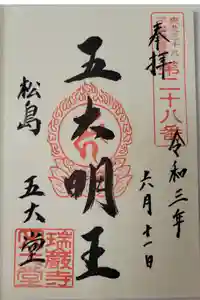 奉拝
第二十八番
令和三年
六月十一日
五大明王
松島
五大堂
瑞巌寺
五大堂